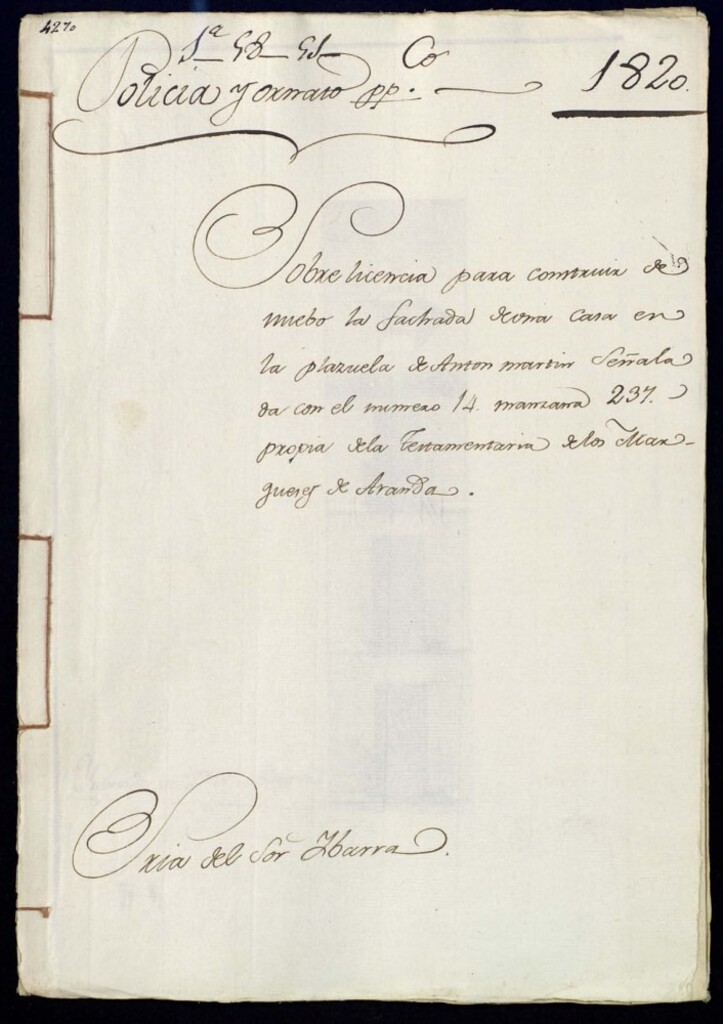 4270
1ª 58 51 Co
Policia y ornato pp. 1820.
Sobre licencia para construir de
nuebo la fachada de una casa en
la plazuela de Anton martin Señala
da con el numero 14. manzana 237.
propia de la Testamentaria de los Mar-
queses de Aranda.
Sria del Sor Ibarra.